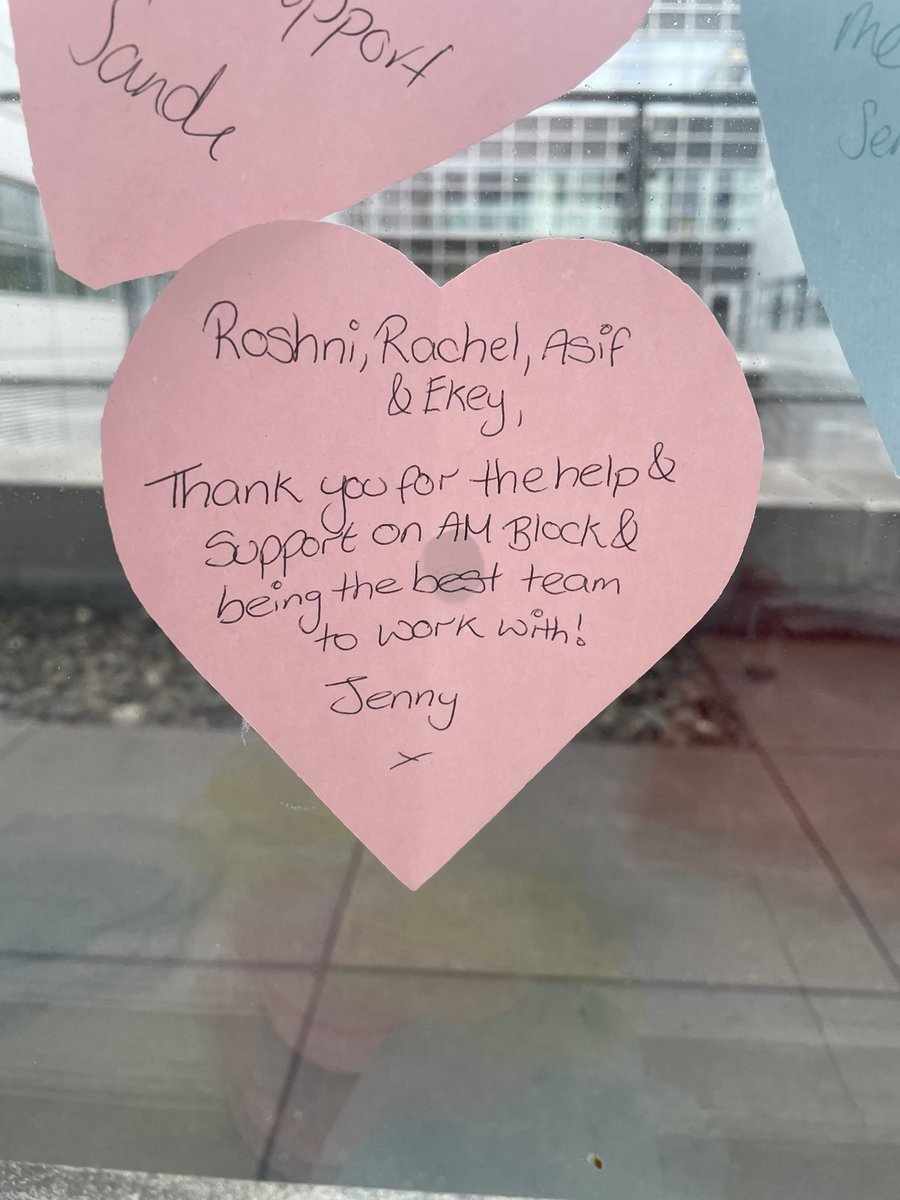 support
Sande
me
Ser
Roshni, Rachel, Asif
& Ekey,
Thank you for the help &
Support on AM Block &
being the best team
to work with!
Jenny
x